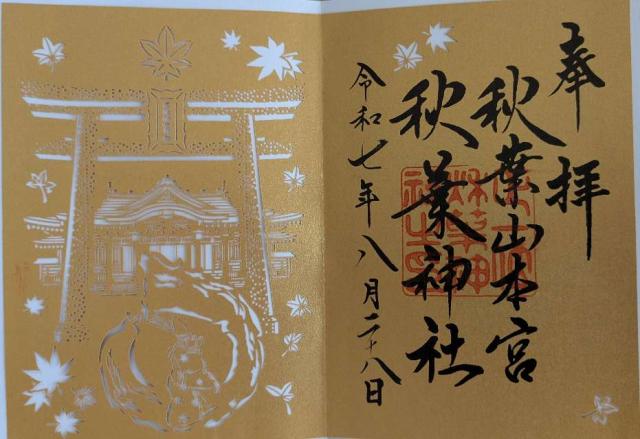 奉拝
秋葉山本宮
秋葉神社
令和七年八月二十八日